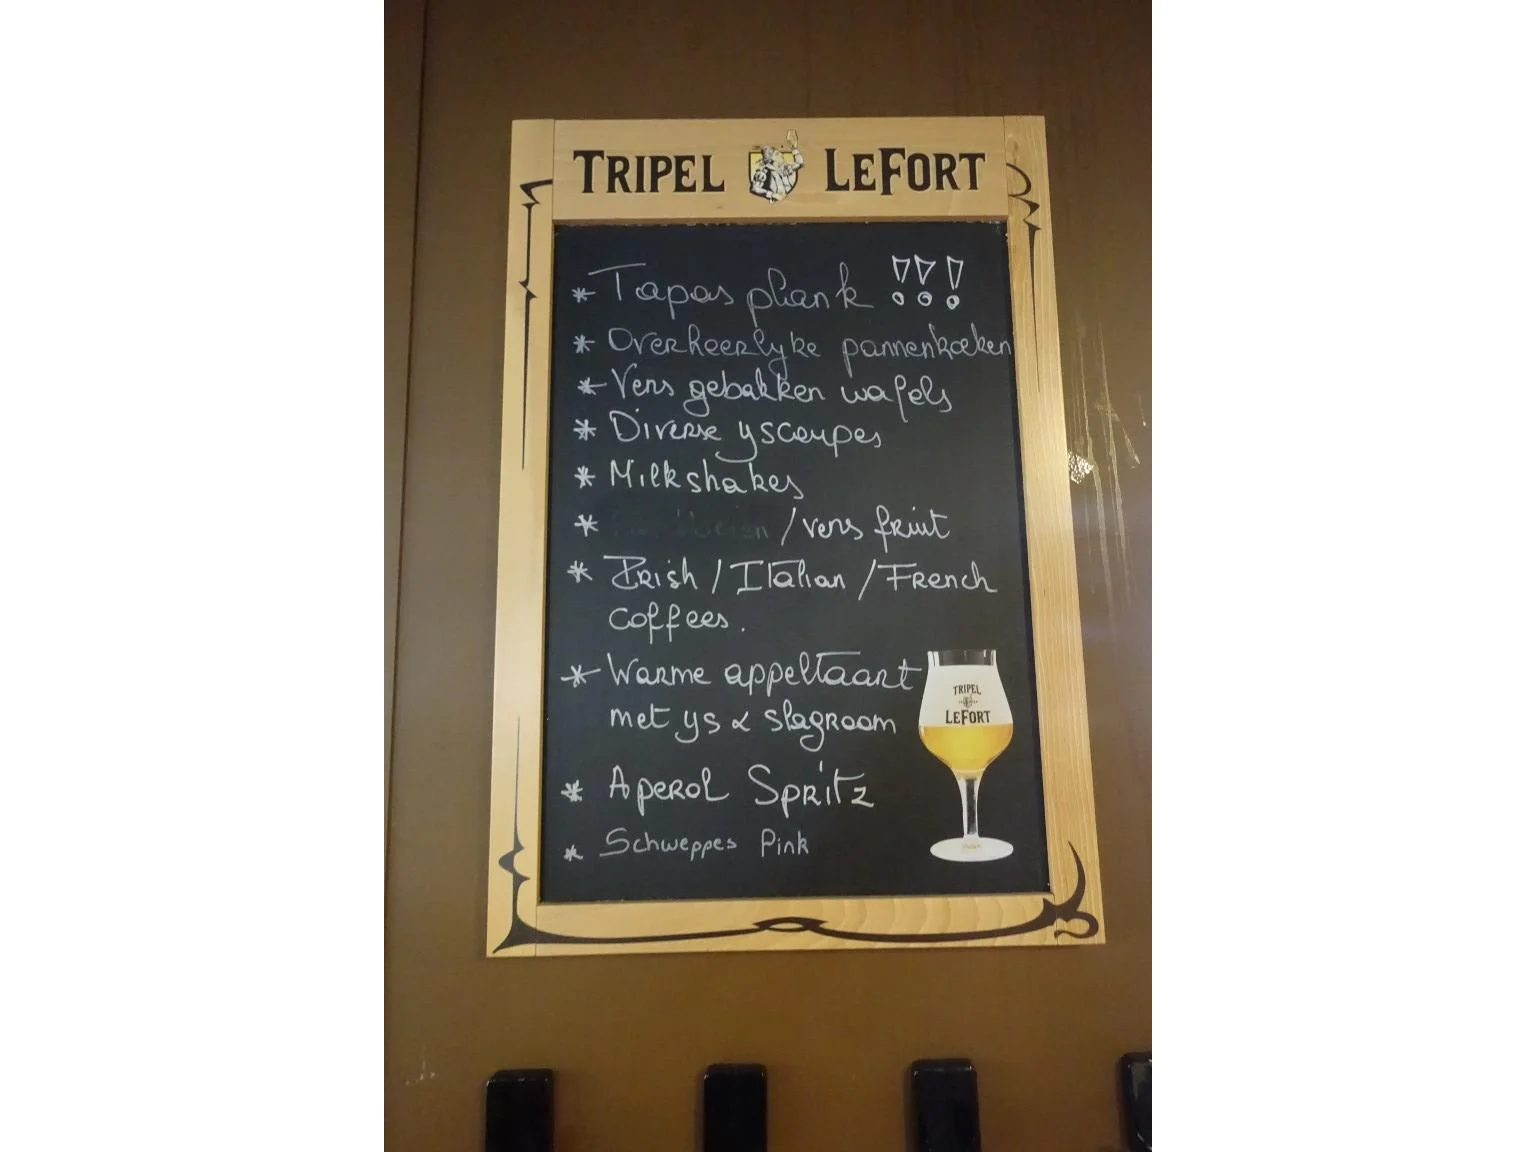 TRIPEL LEFORT
* Tapas plank !!!
* Overheerlyke pannenkoeken
* Vers gebakken wafels
* Diverse yscoupes
* Milkshakes
* / vers fruit
* Irish / Italian / French
coffees.
* Warme appeltaart
met ys & slagroom
TRIPEL
LEFORT
* Aperol Spritz
* Schweppes Pink